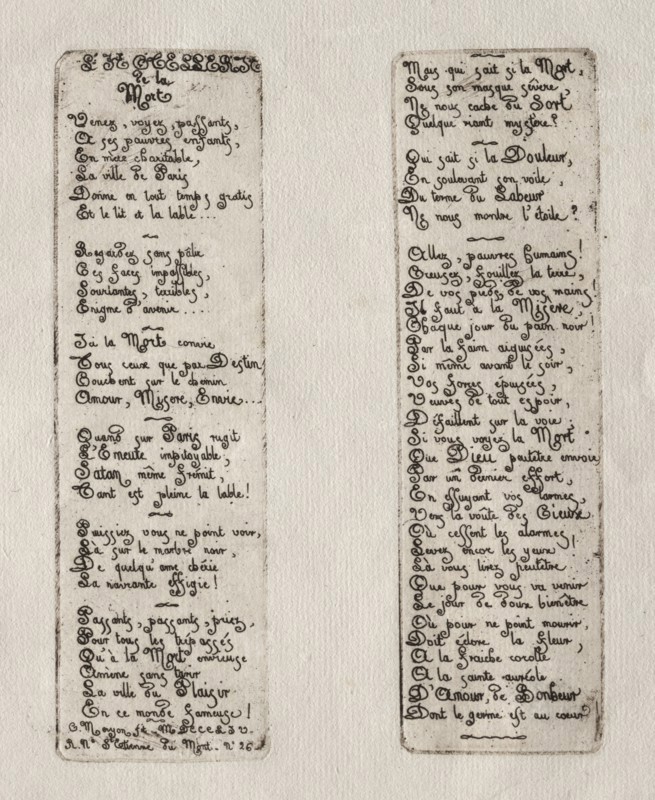 L'HOTELLERIE
de la
Mort
Venez, voyez, passants,
A ses pauvres enfants,
En mère charitable,
La ville de Paris
Donne en tout temps gratis
Et le lit et la table...
Regardez sans pâlir
Ces faces impassibles,
Souriantes, terribles,
Enigme d'avenir....
Ici la Mort convie
Tous ceux que par Destin,
Couchent sur le chemin
Amour, Misere, Envie...
Quand sur Paris rugit
L'Emeute impitoyable,
Satan même frémit,
Tant est pleine la table!
Puissiez vous ne point voir,
Là sur le marbre noir,
De quelqu'ame chérie
La navrante effigie!
Passants, passants, priez,
Pour tous les trépassés
Qu'à la Mort envieuse
Amene sans tarir
La ville du Plaisir
En ce monde fameuse!
C. Meryon ft MDCCCLIV.
R. Ne St Etienne du Mont. No 26
Mais qui sait si la Mort,
Sous son masque sévère,
Ne nous cache du Sort
Quelque riant mystère?
Qui sait si la Douleur,
En soulevant son voile,
Du terme du Labeur
Ne nous montre l'étoile?
Allez, pauvres humains!
Creusez, fouillez la terre,
De vos pieds, de vos mains!
Il faut à la Misere,
Chaque jour du pain noir!
Par la faim aiguisées,
Si même avant le soir,
Vos forces épuisées,
Veuves de tout espoir,
Défaillent sur la voie,
Si vous voyez la Mort
Que Dieu peutêtre envoie
Par un dernier effort,
En essuyant vos larmes,
Vers la voûte des Cieux
Où cessent les alarmes
Levez encor les yeux!
La vous lirez peutêtre
Que pour vous va venir
Le jour de doux bienêtre
Où pour ne point mourir,
Doit éclore la fleur,
A la fraiche corolle
A la sainte auréole
D'Amour, de Bonheur
Dont le germe est au coeur